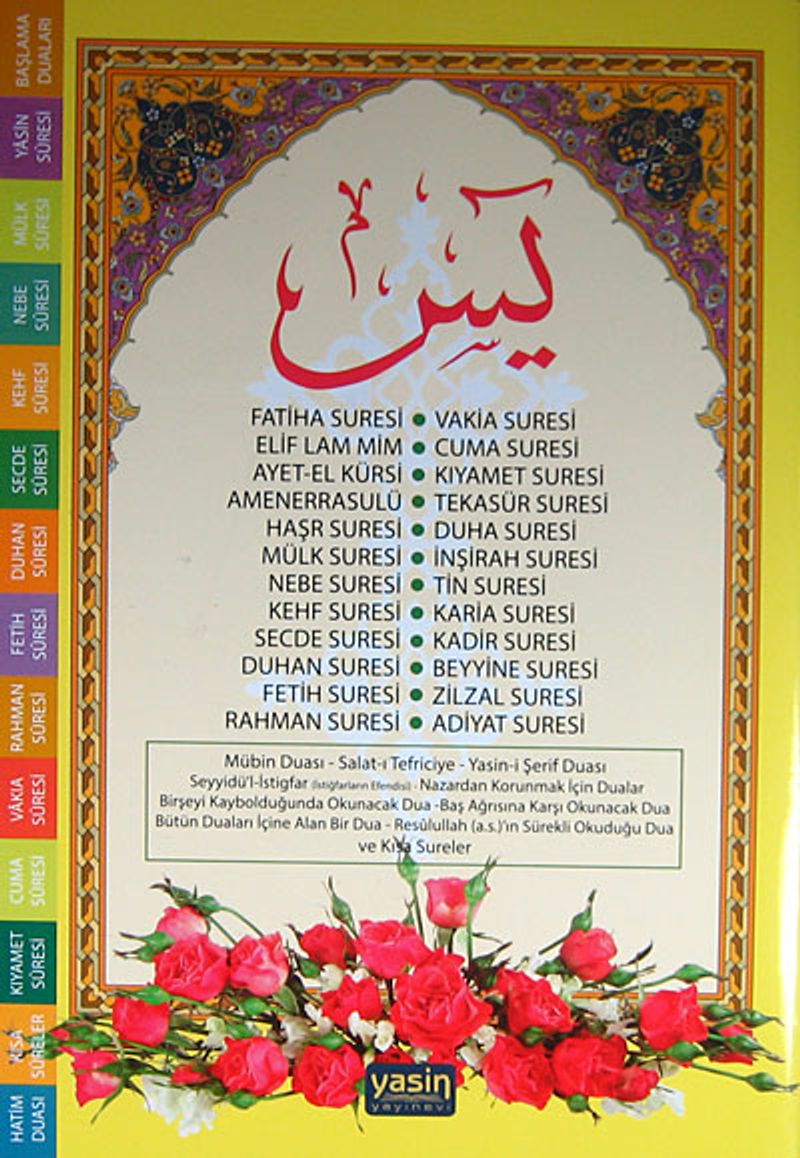 BAŞLAMA
DUALARI
YÂSİN
SÛRESİ
MÜLK
SÛRESİ
NEBE
SÛRESİ
KEHF
SÛRESİ
SECDE
SÛRESİ
DUHAN
SÛRESİ
FETİH
SÛRESİ
RAHMAN
SÛRESİ
VÂKIA
SÛRESİ
CUMA
SÛRESİ
KIYAMET
SÛRESİ
KISA
SÛRELER
HATİM
DUASI
يس
FATİHA SURESİ ● VAKİA SURESİ
ELİF LAM MİM ● CUMA SURESİ
AYET-EL KÜRSİ ● KIYAMET SURESİ
AMENERRASULÜ ● TEKASÜR SURESİ
HAŞR SURESİ ● DUHA SURESİ
MÜLK SURESİ ● İNŞİRAH SURESİ
NEBE SURESİ ● TİN SURESİ
KEHF SURESİ ● KARİA SURESİ
SECDE SURESİ ● KADİR SURESİ
DUHAN SURESİ ● BEYYİNE SURESİ
FETİH SURESİ ● ZİLZAL SURESİ
RAHMAN SURESİ ● ADİYAT SURESİ
Mübin Duası - Salat-ı Tefriciye - Yasin-i Şerif Duası
Seyyidü'l-İstigfar (İstiğfarların Efendisi) - Nazardan Korunmak İçin Dualar
Birşeyi Kaybolduğunda Okunacak Dua -Baş Ağrısına Karşı Okunacak Dua
Bütün Duaları İçine Alan Bir Dua - Resûlullah (a.s.)'ın Sürekli Okuduğu Dua
ve Kısa Sureler
yasin
yayınevi